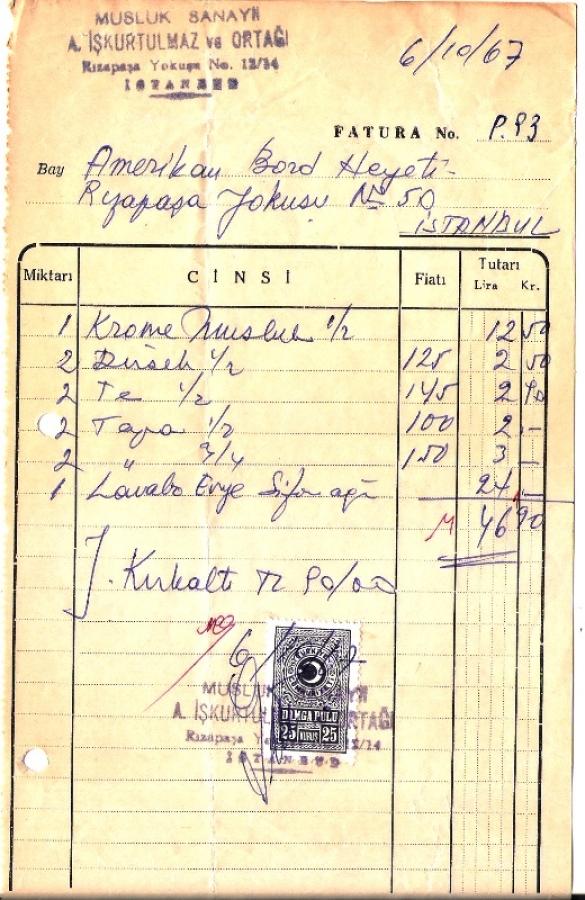 MUSLUK SANAYİİ
A. İŞKURTULMAZ ve ORTAĞI
Rızapaşa Yokuşu No. 12/14
İSTANBUL
6/10/67
FATURA No. P.93
Bay Amerikan Bord Heyeti
Rızapaşa Yokuşu No 50
İSTANBUL
Miktarı CİNSİ Fiatı Tutarı
Lira Kr.
1 Krome Musluk 1/2 12 50
2 Dirsek 1/2 125 2 50
2 Te 1/2 145 2 90
2 Tapa 1/2 100 2 -
2 " 3/4 150 3 -
1 Lavabo Evye Sifon 24 -
46 90
Y. Kırkaltı TL 90/00
DAMGA PULU
25 KURUŞ 25
MUSLUK SANAYİİ
A. İŞKURTULMAZ ve ORTAĞI
Rızapaşa Yokuşu No. 12/14
İSTANBUL